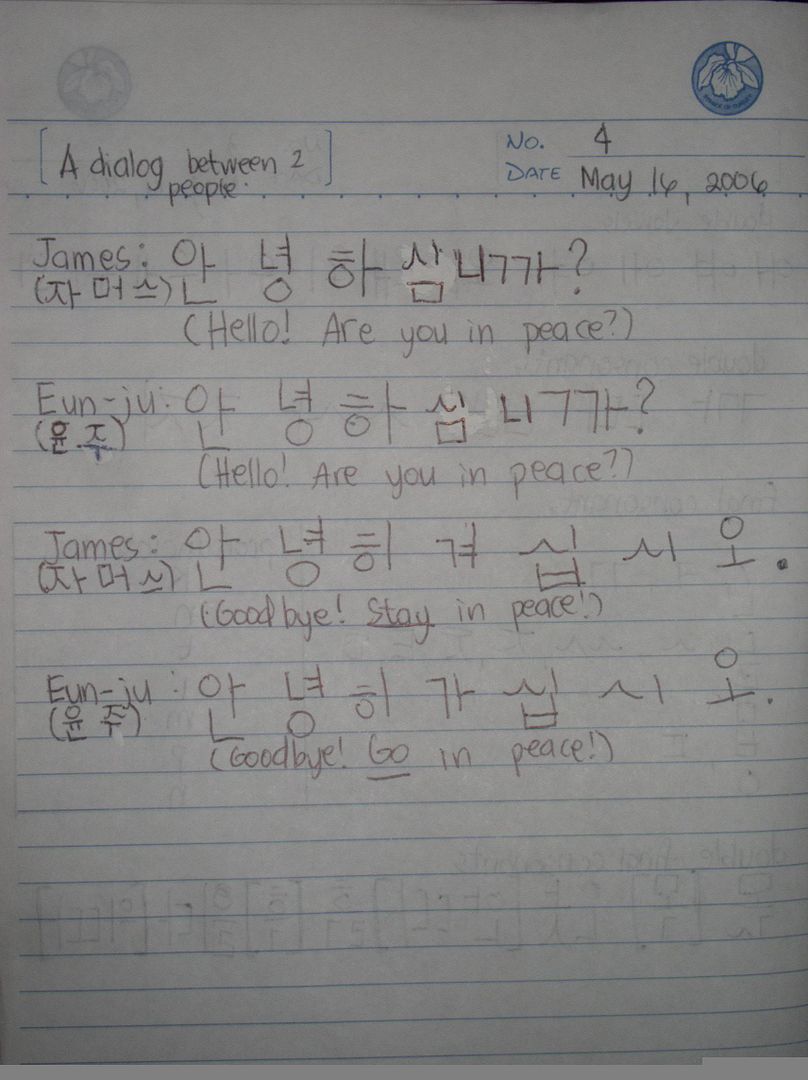 [A dialog between 2
people.]
NO. 4
DATE May 16, 2006
James: 안 녕 하 삼 니까?
(자 머 스)
(Hello! Are you in peace?)
Eun-ju: 안 녕 하 심 니까?
(윤.주)
(Hello! Are you in peace?)
James: 안 녕 히 겨 십 시 오.
(자 머 스)
(Goodbye! Stay in peace!)
Eun-ju: 안 녕 히 가 십 시 오.
(윤 주)
(Goodbye! Go in peace!)